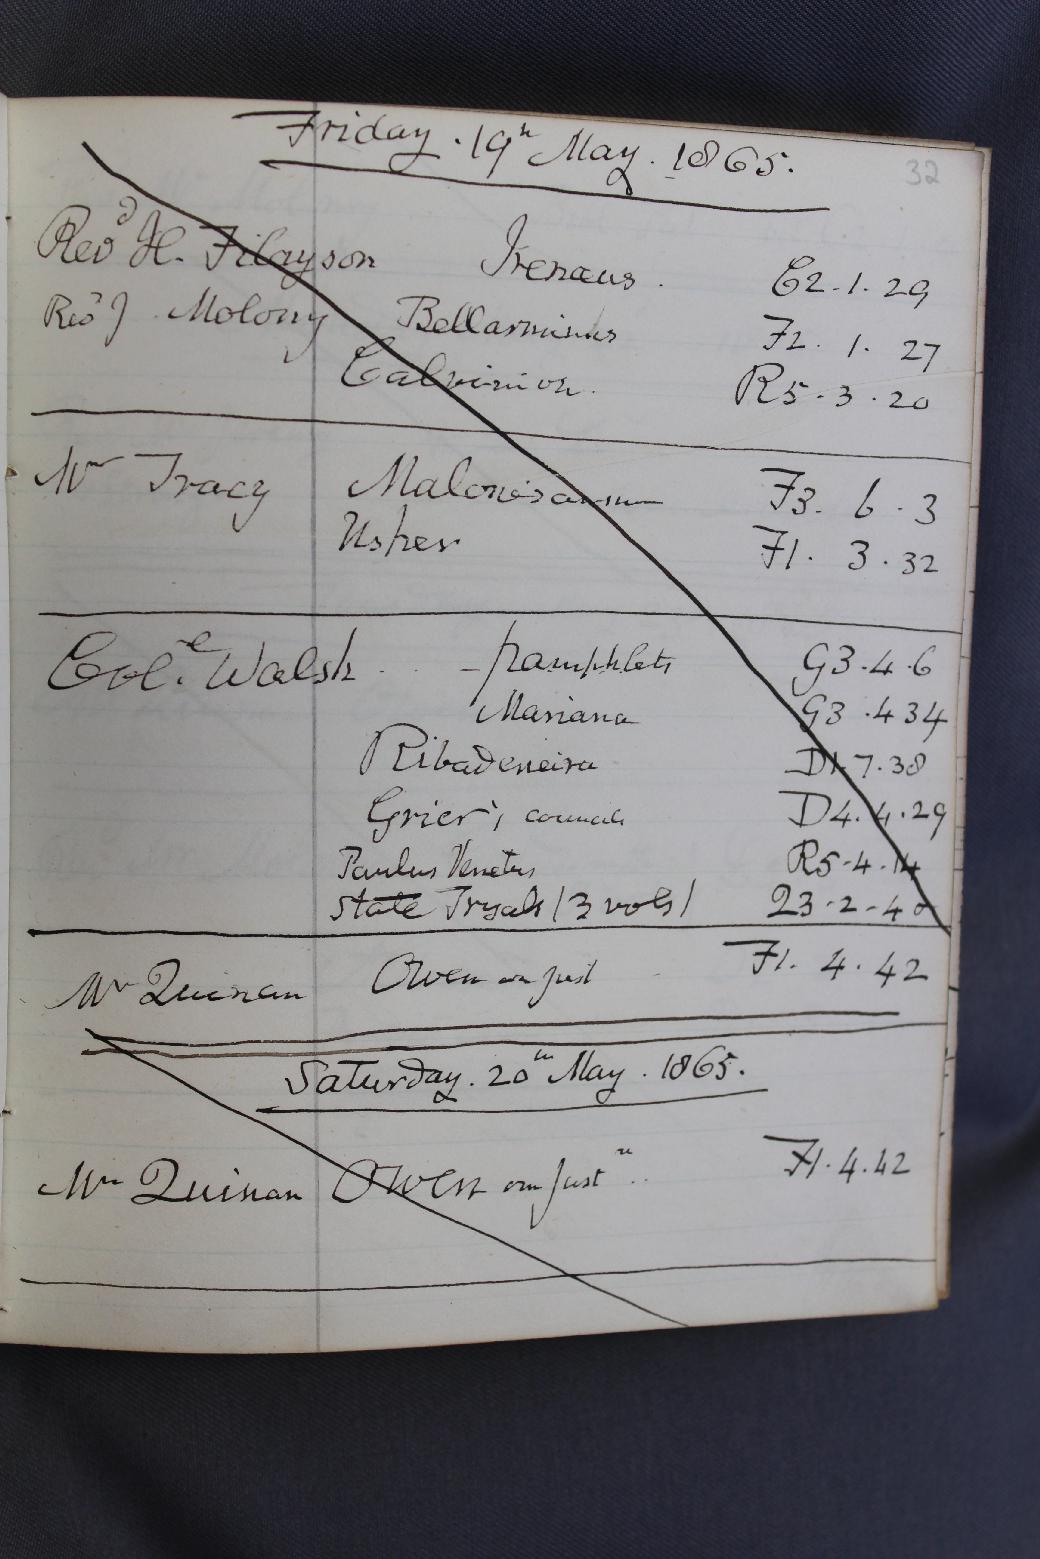 Friday . 19th May . 1865.
32
Revd H. Filayson Irenæus . C2.1.29
Revd J Molony Bellarminus F2. 1. 27
Calvinion. R5.3.20
Mr Tracy F3. 6 .3
Usher F1. 3.32
Col.e Walsh - pamphlets G3.4.6
Mariana G3 .4 34
Ribadeneira D1.7.38
Grier's councils D4.4.29
Paulus Venetus R5.4.14
State Tryals (3 vols) Q3-2-40
Mr Quinan Owen on just F1. 4.42
Saturday. 20th May . 1865.
Mr Quinan Owen on Justn.. F1.4.42